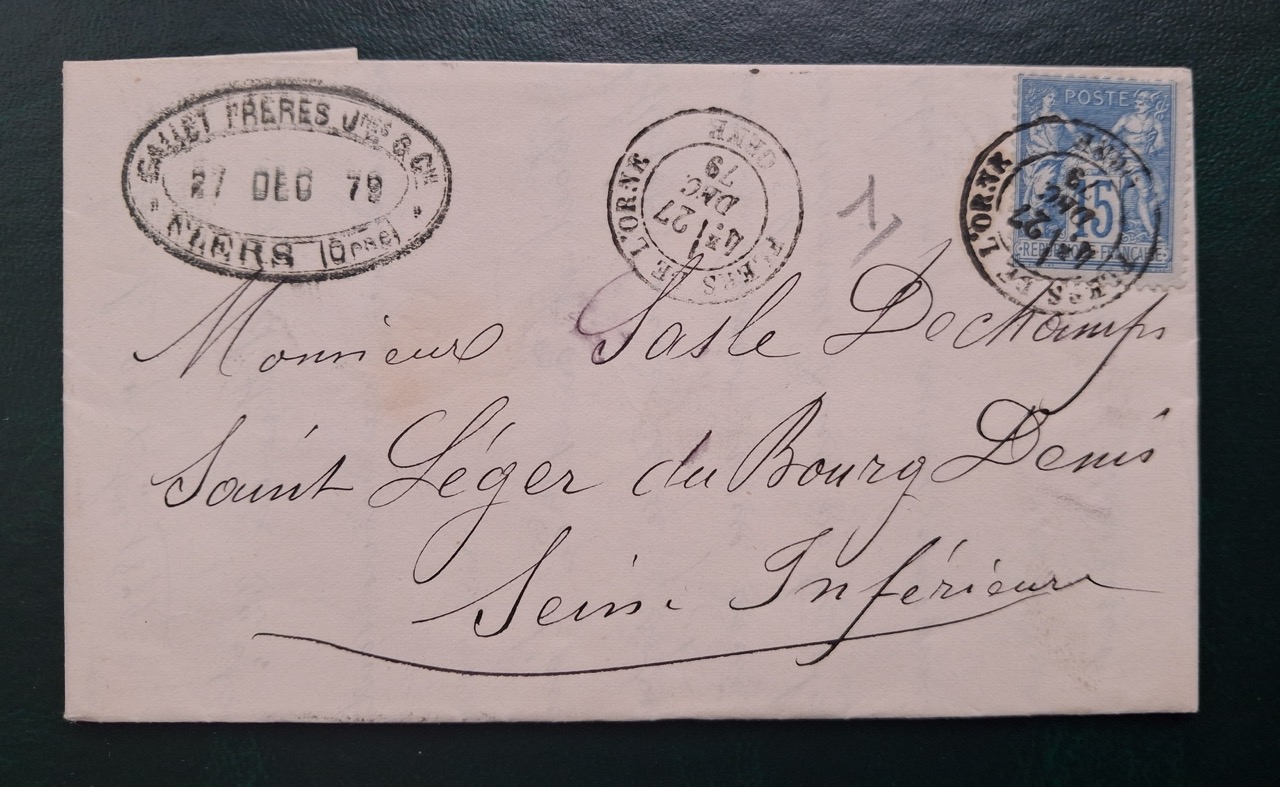 GALLET FRERES Jnes & Cie
27 DEC 79
FLERS (Orne)
FLERS DE L'ORNE
4E/27
DEC
79
ORNE
POSTE
15
REPUBLIQUE FRANCAISE
FLERS DE L'ORNE
4E/27
DEC
79
ORNE
Monsieur Sasle Dechamps
Saint Léger du Bourg Denis
Seine Inférieure